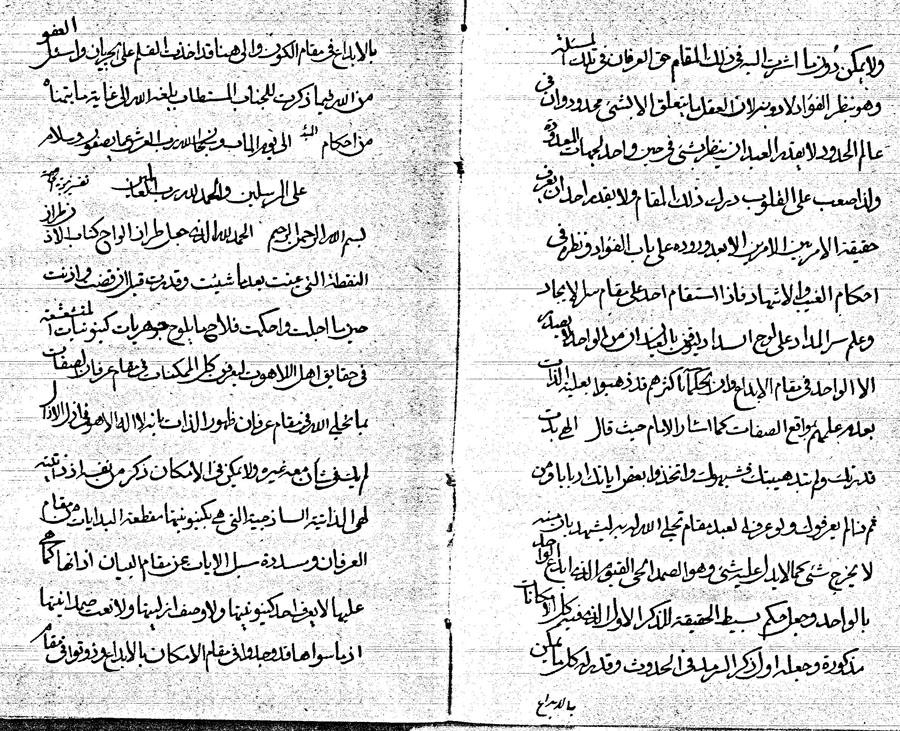 ولا يمكن دون ما اشرت اليه في ذلك المقام حق العرفان في تلك المسئلة
وهو نظر الفؤاد لا دونه لان العقل ما يتعلق الا بشئ محدود وان في
عالم الحدود لا يقدر العبد ان ينظر بشئ في حين واحد بجهات المعدودة
ولذا صعب على القلوب درك ذلك المقام ولا يقدر احد ان يعرف
حقيقة الامر بين الامرين الا بعد وروده على باب الفؤاد ونظره في
احكام الغيب والاشهاد فاذا استقام احد على مقام سر الايجاد
وعلم سر المداد على لوح السداد ليوقن بالعيان ان من الواحد لا يصدر
الا الواحد في مقام الابداع وان الحكماء اكثرهم قد ذهبوا بعلية الذات
بعدم علمهم بمواقع الصفات كما اشار الامام حيث قال الهي بدت
قدرتك ولم تبد هيئتك فشبهوك واتخذوا بعض اياتك اربابا فمن
ثم ذا لم يعرفوك ولو عرف العبد مقام تجلي الله له به ليشهد بان منه
لا يخرج شئ كما لا يدل عليه شئ وهو الصمد الحي القيوم الذي ابدع الواحد
بالواحد وجعل حكم بسيط الحقيقة للذكر الاول الذي فيه كل الامكانات
مذكورة وجعله اول ذكر في الحدوث وقدر له كل ما يمكن
بالابداع
بالابداع في مقام الكون والى هنا قد اخذت القلم على الجريان واسئل العفو
من الله فيما ذكرت للجناب المستطاب بلغه الله الى غاية ما يتمناه
من احكام المبدء الى يوم الماب وسبحان الله رب العرش عما يصفون وسلام
على المرسلين والحمد لله رب العالمين
بسم الله الرحمن الرحيم الحمد لله الذي جعل طراز الواح كتاب الاذن طراز
النقطة التي عينت بعد ما شيئت وقدرت قبل ان قضت واذنت
حين ما اجلت واحكمت فلاح بلوح جوهريات كينونيات المتشعشعة
في حقايق اهل اللاهوت ليعرفن كل الممكنات في مقام عرفان الصفات
بما تجلى الله في مقام عرفان ظهور الذات بانه لا اله الا هو في ازل الازال
لم يك في شان معه غيره ولا يكن في الامكان ذكر من نفسه اذ ذاتيته
لهي الذاتية الساذجية التي هي بكينونيتها مقطعة البدايات من مقام
العرفان ومسددة سبل الايات عن مقام البيان اذ انها كما هي
عليها لا يعرف احد كينونيتها ولا وصف ازليتها ولا نعت صمدانيتها
اذ ما سواها قد وجدوا في مقام الامكان بالابداع وذوتوا في مقام